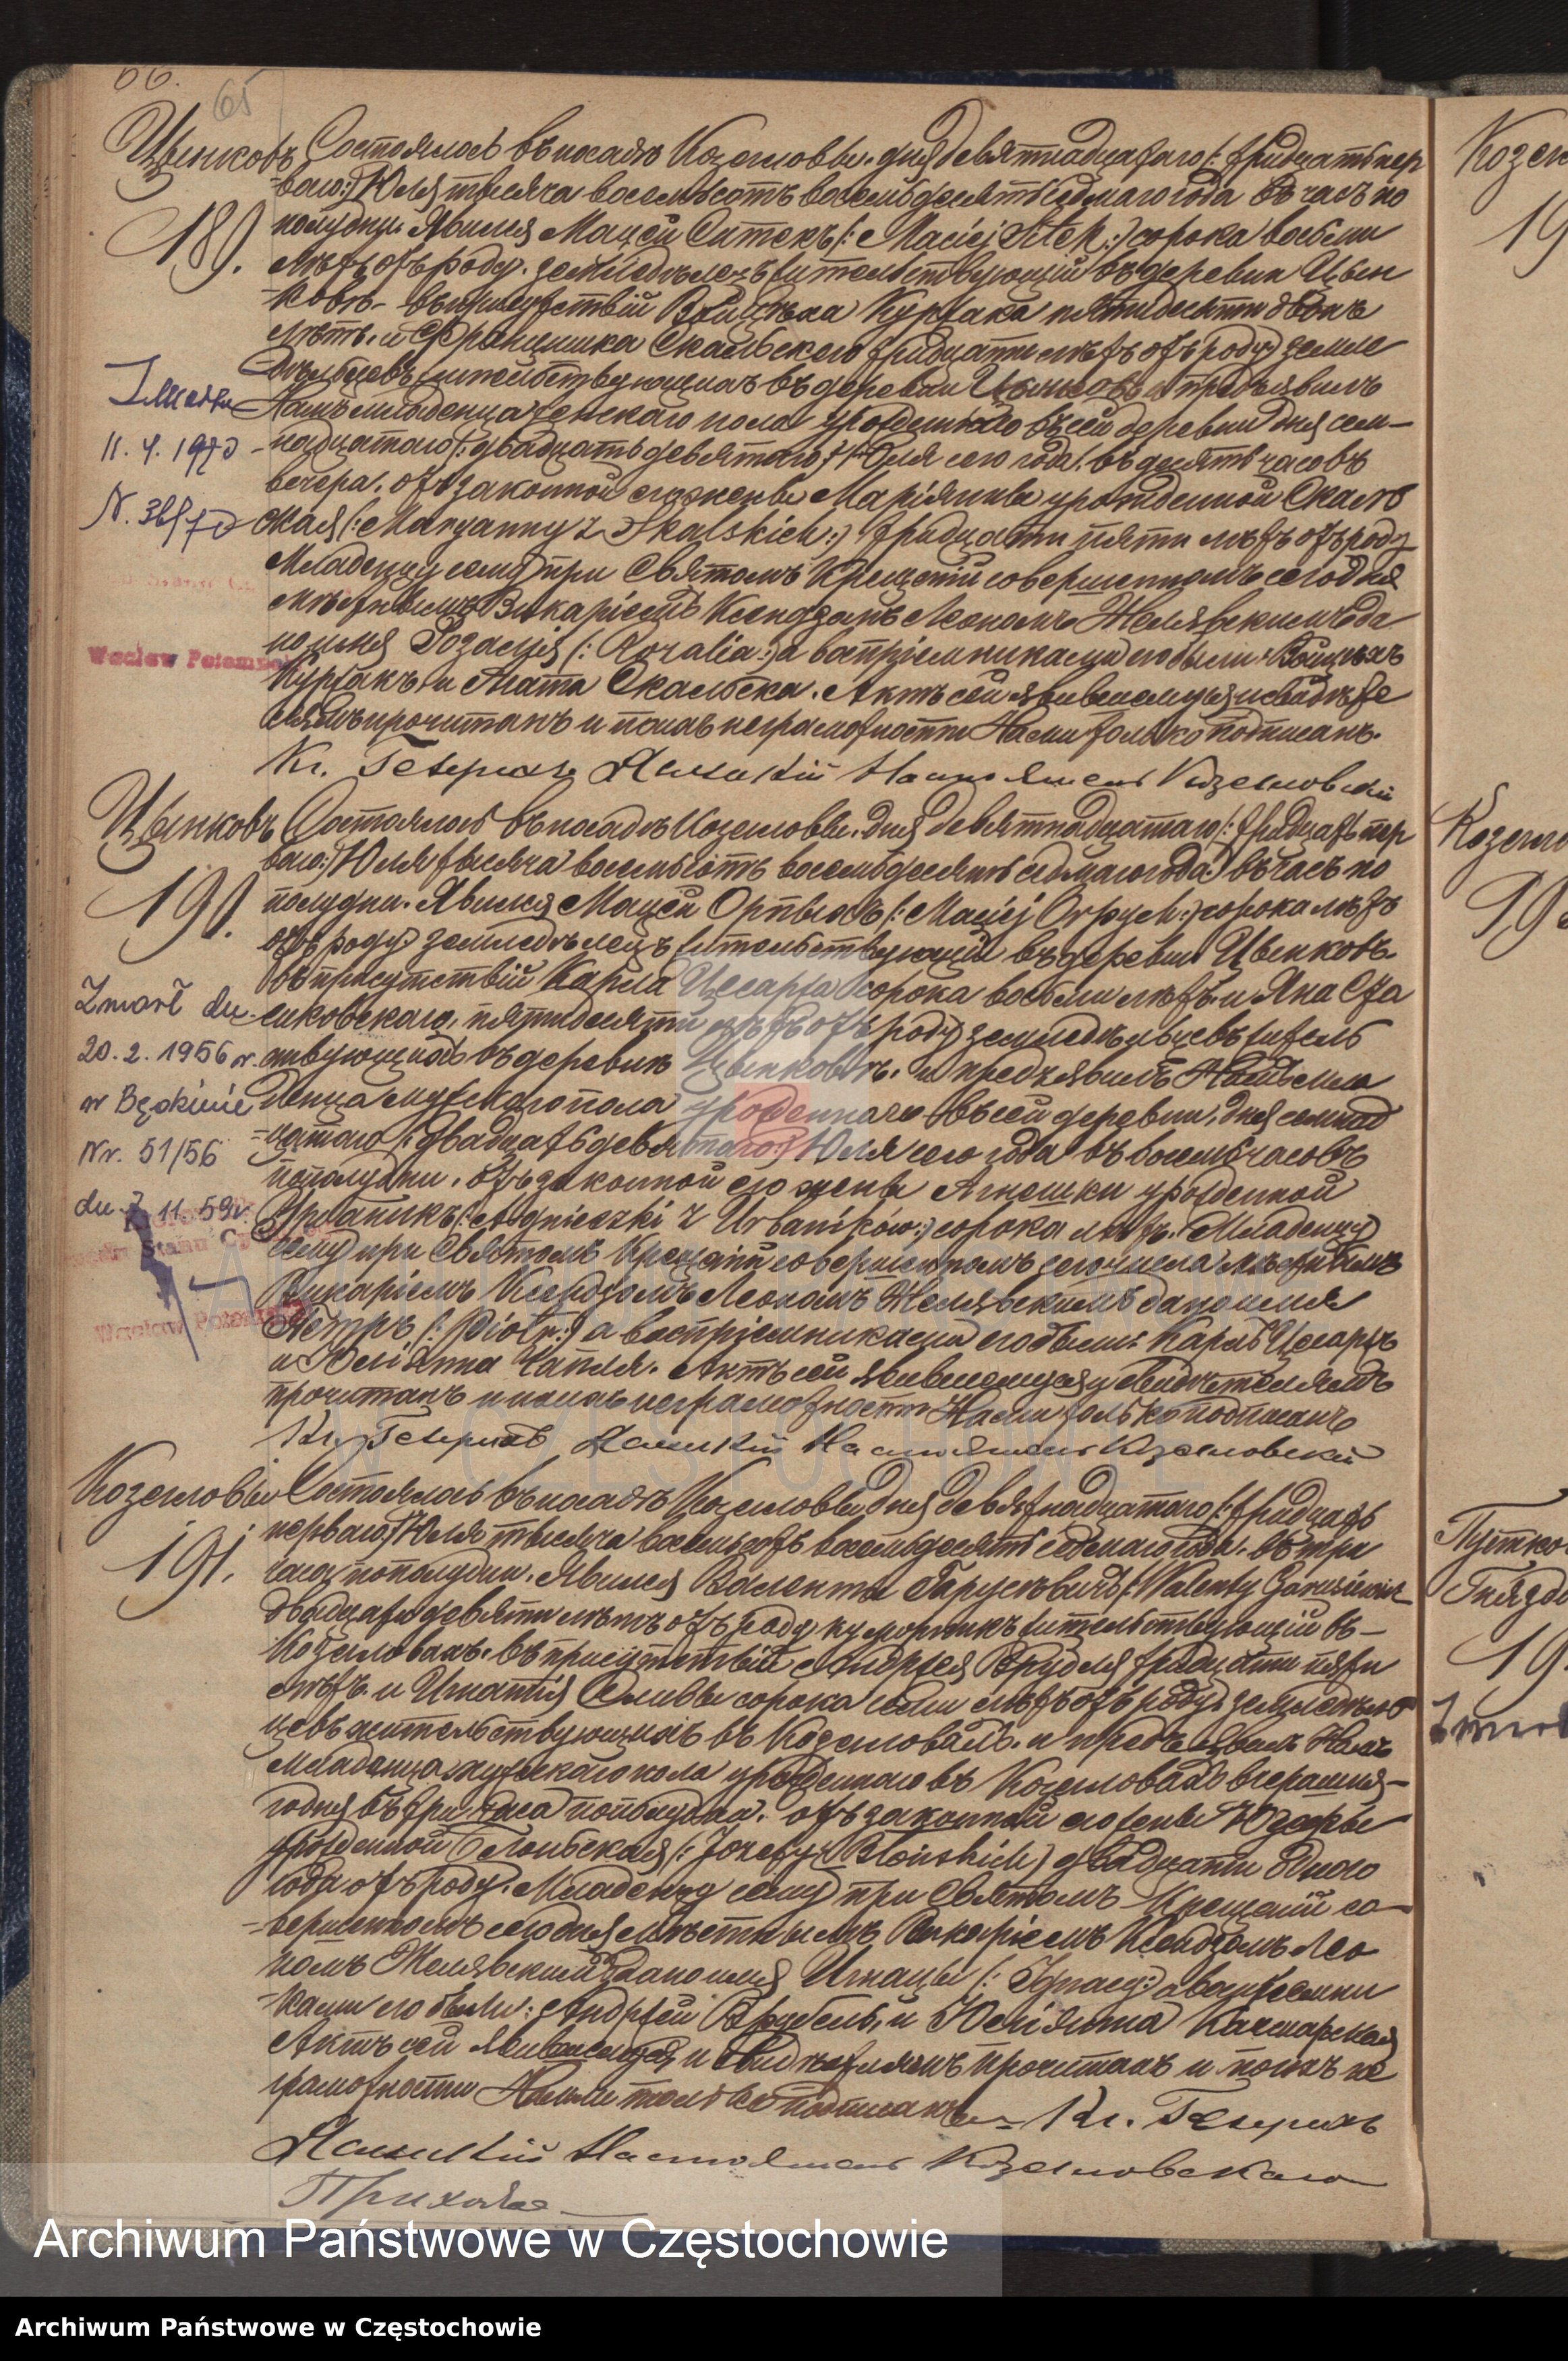 66.
65
Цынковъ
189.
Состоялось въ посадѣ Козегловы, дня девятнадцатаго /: тридцать пер
ваго :/ Юля тысяча восемьсотъ восемьдесятъ седмаго года въ часъ по
полудни. Явился Мацѣй Ситекъ /: Maciej Sitek :/ сорока восьми
лѣтъ отъ роду, земледѣлецъ жительствующій въ деревни Цын
ковѣ, въ присутствіи Войцѣха Куртака пятидесяти
лѣтъ, и Францишка Скальскего тридцати лѣтъ отъ роду, земле
дѣльцевъ жительствующихъ въ деревни Цынковѣ и предъявилъ
Намъ младенца женскаго пола урожденнаго въ сей деревни дня сем-
надцатаго /: двадцать девятаго :/ Юля сего года, въ десять часовъ
вечера, отъ законной его жены Маріянны урожденной Скаль
ская /: Maryanny z Skalskich :/ тридцати пяти лѣтъ отъ роду
Младенцу сему при Святомъ Крещеніи совершенномъ сегодня
мѣстнымъ Викаріемъ Ксендзомъ Леономъ Желявскимъ да
но имя Розалія /: Rozalia :/ а воспріемниками его были: Войцѣхъ
Куртакъ и Агата Скальска. Актъ сей явившемуся и свидѣте
лямъ прочитанъ и по ихъ неграмотности Нами только подписанъ.
Кс. Генрихъ Настоятель Козегловскій
Zmarła
11. 4. 1970
N. 36/70
Wacław Potempski
Цынковъ
190.
Состоялось въ посадѣ Козегловы, дня девятнадцатаго /: тридцать пер
ваго :/ Юля тысяча восемьсотъ восемьдесятъ седмаго года въ часъ по
полудни. Явился Мацѣй Орпыхъ /: Maciej Orpych :/ сорока лѣтъ
отъ роду, земледѣлецъ жительствующій въ деревни Цынковѣ
въ присутствіи Кароля Цесаржа сорока восьми лѣтъ и Яна Ста
сиковскаго, пятидесяти лѣтъ отъ роду, земледѣльцевъ жительс
твующихъ въ деревни Цынковѣ, и предъявилъ Намъ мла
денца мужскаго пола урожденнаго въ сей деревни, дня семнад
цатаго /: двадцать девятаго :/ Юля сего года въ восемь часовъ
пополудни, отъ законной его жены Агнешки урожденной
Урбаникъ /: Agnieszki z Urbaników :/ сорока лѣтъ. Младенцу
сему при Святомъ Крещеніи совершенномъ сего числа мѣстнымъ
Викаріемъ Ксендзомъ Леономъ Желявскимъ дано имя
Петръ /: Piotr :/ а воспріемниками его были: Кароль Цесаржъ
и Юліянна Чапля. Актъ сей явившемуся и свидѣтелямъ
прочитанъ и по ихъ неграмотности Нами только подписанъ
Кс. Генрихъ Настоятель Козегловскій
Zmarł dn.
20. 2. 1956 r.
w Będzinie
Nr. 51/56
dn. 7 11. 59r.
Wacław Potempski
Козегловы
191.
Состоялось въ посадѣ Козегловы дня девятнадцатаго /: тридцать
перваго :/ Юля тысяча восемьсотъ восемьдесятъ седмаго года, въ три
часа пополудни. Явился Валенты Гарусѣвичъ /: Walenty Garusiewicz
двадцати девяти лѣтъ отъ роду, куморникъ жительствующій въ
Козегловахъ, въ присутствіи Андржея Врубля тридцати пяти
лѣтъ, и Игнатія Оливы сорока семи лѣтъ отъ роду, земледѣль
цевъ жительствующихъ въ Козегловахъ, и предъявилъ Намъ
Младенца мужскаго пола урожденнаго въ Козегловахъ вчерашня-
го дня въ три часа пополудни, отъ законной его жены Юзефы
урожденной Блоньская /: Józefy z Błońskich :/ двадцати одного
года отъ роду. Младенцу сему при Святомъ Крещеніи со-
вершенномъ сегодня мѣстнымъ Викаріемъ Ксендзомъ Лео
номъ Желявскимъ дано имя Игнацы /: Ignacy :/ а воспріемни
ками его были: Андржей Врубель, и Юліянна Качмарская
Актъ сей явившемуся и свидѣтелямъ прочитанъ и по ихъ не
грамотности Нами только подписанъ Кс. Генрихъ
Настоятель Козегловскаго
Прихода
Козег
19
Козегло
19
Пустко
Гнязд
19
Zmar
ARCHIWUM PAŃSTWOWE
W CZĘSTOCHOWIE
Archiwum Państwowe w Częstochowie
Archiwum Państwowe w Częstochowie